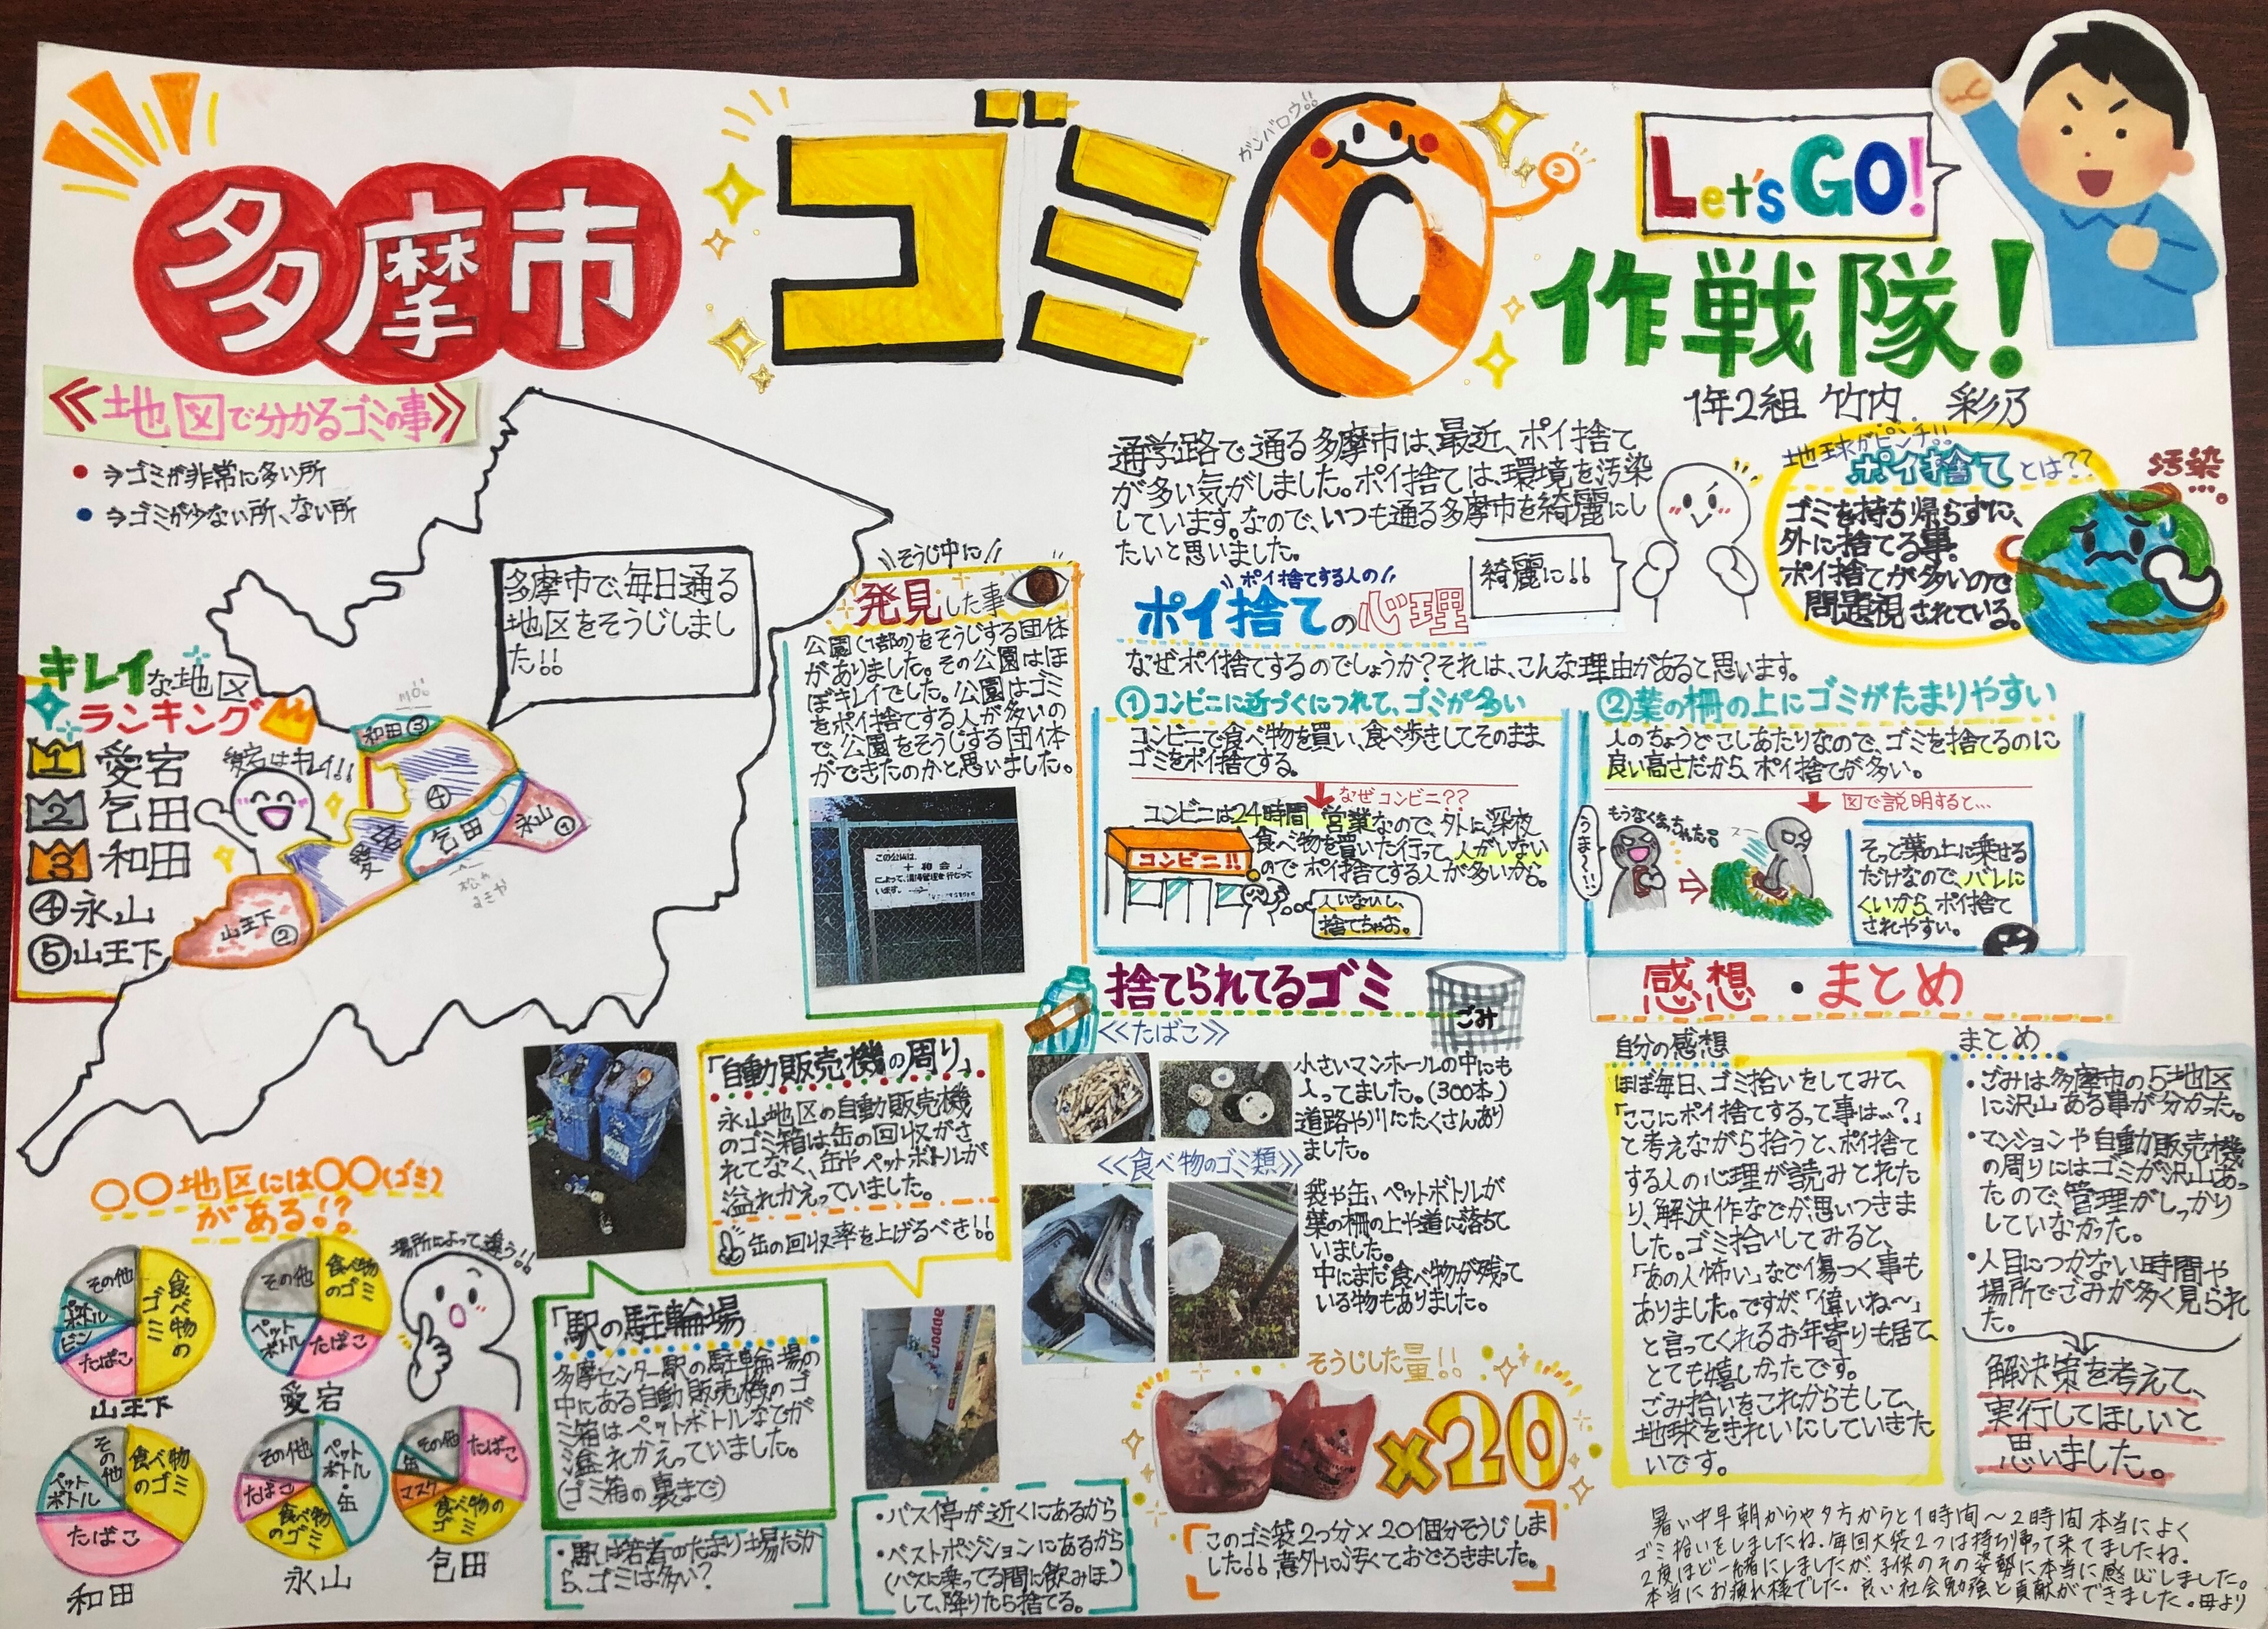 多摩市
ゴミ0
ガンバロウ!!
Let's GO!
作戦隊!
1年2組 竹内 彩乃
《地図で分かるゴミの事》
● ⇒ゴミが非常に多い所
● ⇒ゴミが少ない所、ない所
多摩市で、毎日通る
地区をそうじしまし
た!!
キレイな地区
ランキング
1 愛宕
2 乞田
3 和田
④永山
⑤山王下
愛宕はキレイ!!
和田③
④
愛宕
乞田
永山
山王下②
通学路で通る多摩市は、最近、ポイ捨て
が多い気がしました。ポイ捨ては、環境を汚染
しています。なので、いつも通る多摩市を綺麗にし
たいと思いました。
綺麗に!!
地球がピンチ!!
ポイ捨てとは??
ゴミを持ち帰らずに、
外に捨てる事。
ポイ捨てが多いので
問題視されている。
汚染…。
\\そうじ中に//
発見した事
公園(1部の)をそうじする団体
がありました。その公園はほ
ぼキレイでした。公園はゴミ
をポイ捨てする人が多いの
で、公園をそうじする団体
ができたのかと思いました。
この公園は、
「十和会」
によって、清掃管理を行なって
います。
\\ポイ捨てする人の//
ポイ捨ての心理
なぜポイ捨てするのでしょうか?それは、こんな理由があると思います。
①コンビニに近づくにつれて、ゴミが多い
コンビニで食べ物を買い、食べ歩きしてそのまま
ゴミをポイ捨てする。
なぜコンビニ??
コンビニは24時間営業なので、外に、深夜
食べ物を買いた行って、人がいない
のでポイ捨てする人が多いから。
コンビニ!!
人いないし、
捨てちゃお。
②葉の柵の上にゴミがたまりやすい
人のちょうどこしあたりなので、ゴミを捨てるのに
良い高さだから、ポイ捨てが多い。
図で説明すると…
うま〜!!
もうなくなっちゃった。
そっと葉の上に乗せる
だけなので、バレに
くいから、ポイ捨て
されやすい。
捨てられてるゴミ
ごみ
≪たばこ≫
小さいマンホールの中にも
入ってました。(300本)
道路や川にたくさんあり
ました。
≪食べ物のゴミ類≫
袋や缶、ペットボトルが
葉の柵の上や道に落ちて
いました。
中にまだ食べ物が残って
いる物もありました。
そうじした量!!
×20
このゴミ袋2つ分×20個分そうじしま
した!!意外に汚くておどろきました。
「自動販売機の周り」
永山地区の自動販売機
のゴミ箱は缶の回収がさ
れてなく、缶やペットボトルが
溢れかえっていました。
缶の回収率を上げるべき!!
「駅の駐輪場
多摩センター駅の駐輪場の
中にある自動販売機のゴ
ミ箱はペットボトルなどが
溢れかえっていました。
(ゴミ箱の裏まで)
・駅は若者のたまり場だか
ら、ゴミは多い?
・バス停が近くにあるから
・ベストポジションにあるから
(バスに乗ってる間に飲みほ
して、降りたら捨てる。)
○○地区には○○(ゴミ)
がある!?
場所によって違う!!
その他
食べ物のゴミ
ペットボトル
ビン
たばこ
山王下
その他
食べ物のゴミ
ペットボトル
たばこ
愛宕
その他
食べ物のゴミ
ペットボトル
たばこ
和田
その他
ペットボトル・缶
たばこ
食べ物のゴミ
永山
その他
たばこ
缶
マスク
食べ物のゴミ
乞田
感想・まとめ
自分の感想
ほぼ毎日、ゴミ拾いをしてみて、
「ここにポイ捨てするって事は…?」
と考えながら拾うと、ポイ捨て
する人の心理が読みとれた
り、解決作などが思いつきま
した。ゴミ拾いしてみると、
「あの人怖い」など傷つく事も
ありました。ですが、「偉いね〜」
と言ってくれるお年寄りも居て、
とても嬉しかったです。
ごみ拾いをこれからもして、
地球をきれいにしていきた
いです。
まとめ
・ごみは多摩市の5地区
に沢山ある事が分かった。
・マンションや自動販売機
の周りにはゴミが沢山あっ
たので、管理がしっかり
していなかった。
・人目につかない時間や
場所でごみが多く見られ
た。
解決策を考えて、
実行してほしいと
思いました。
暑い中早朝からや夕方からと1時間〜2時間本当によく
ゴミ拾いをしましたね。毎回大袋2つは持ち帰って来てましたね。
2度ほど一緒にしましたが、子供のその姿勢に本当に感心しました。
本当にお疲れ様でした。良い社会勉強と貢献ができました。母より